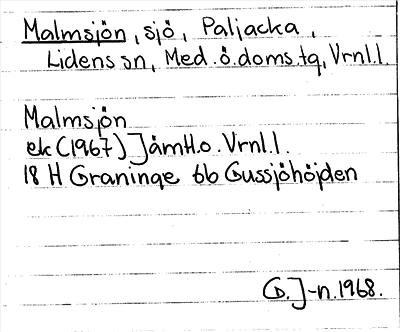 Malmsjön, sjö, Paljacka,
Lidens sn, Med.ö.doms.tg, Vrnl.l.
Malmsjön
ek (1967) Jämtl.o. Vrnl.l.
18 H Graninge 6b Gussjöhöjden
G.J-n.1968.